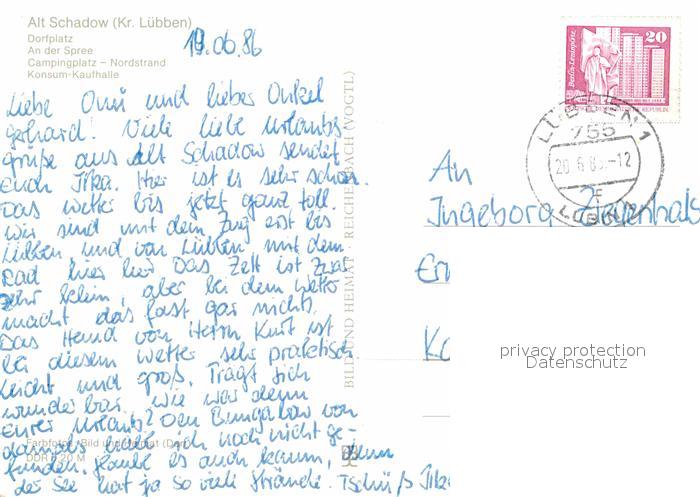 Alt Schadow (Kr. Lübben)
Dorfplatz
An der Spree
Campingplatz – Nordstrand
Konsum-Kaufhalle
19.06.86
Liebe Omi und lieber Onkel
gerhard! Viele liebe Urlaubs-
grüße aus Alt Schadow sendet
Euch Jlka. Hier ist es sehr schön.
Das Wetter bis jetzt ganz toll.
Wir sind mit dem Zug erst bis
Lübben und von Lübben mit dem
Rad hier her Das Zelt ist zwar
sehr klein, aber bei dem Wetter
macht das fast gar nichts.
Das Hemd von Herrn Kurt ist
bei diesem Wetter sehr praktisch
leicht und groß. Trägt sich
wunderbar. Wie war denn
Eurer Urlaub? Den Bungalow von
damals habe ich noch nicht ge-
funden. Glaube es auch kaum, denn
der See hat ja so viele Strände. Tschüß Jlka
Farbfotos: Bild und Heimat
DDR 0,20 M
BILD UND HEIMAT REICHENBACH (VOGTL)
Berlin-Leninplatz
20
LÜBBEN 1
755
20.6.86.-12
LÜBBEN 1
An
Ingeborg Ziegenhals
privacy protection
Datenschutz